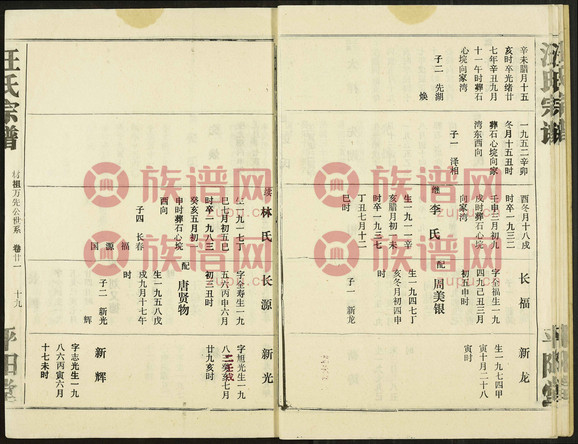 汪氏宗谱
平阳堂
辛未腊月十五
亥时卒光绪廿
七年辛丑九月
十一午时葬石
心垸向家湾
子二 先湖
焕
一九五二辛卯
冬月十五丑时
卒时葬石心垸向家
湾东西向
子一 泽相
酉冬月十八戌
时卒一九三二
壬申三月初九
戌时葬石心垸
向家湾
继 李氏
生一九一一辛
亥腊月初一未
时卒一九三七
丁丑七月十二
巳时
长福
字全福生一九
四九己丑三月
初五申时
配 周美银
生一九四七丁
亥冬月初四申
时
子一 新龙
新龙
生一九七四甲
寅十月二十八
寅时
续 林氏
生一九一七丁
巳七月初五巳
时卒一九八三
癸亥五月初一
申时葬石心垸
酉向
子四 长春
福
源
国
长源
字全寿生一九
五六丙申六月
初三丑时
配 唐贤物
生一九五八戊
戌九月十七午
时
子二 新光
辉
新光
字旭光生一九
廿九亥时
新辉
字志光生一九
八六丙寅六月
十七未时
汪氏宗谱
祖万先公世系
卷廿一
十九
平阳堂
族谱网
族谱网
族谱网
族谱网